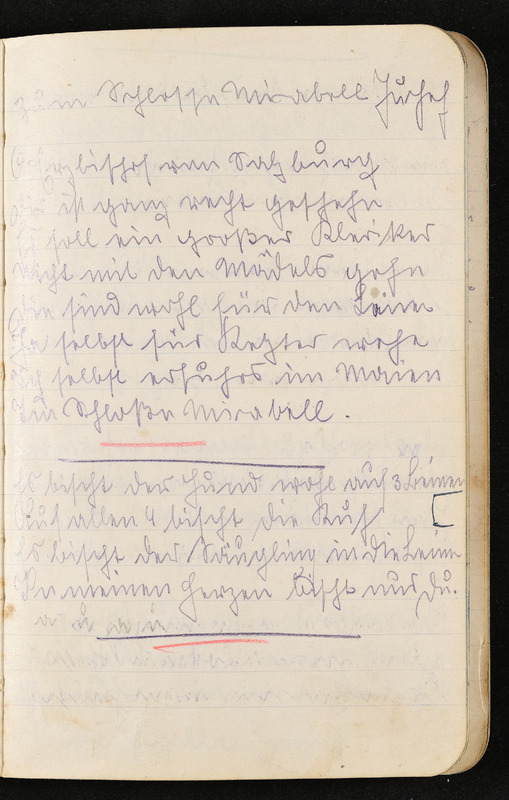 zum Schlosse Mirabell Juhe
Erzbischof von Salzburg
ist ganz recht geschehn
Es soll ein großer Kleriker
nicht mit den Mädels gehn
Die sind wohl für den Leien
Ja selbst für Ketzer
Ich selbst erfuhrs im Maien
Im Schloße Mirabell.
Es bischt der Hund wohl auf 3 Beinen
Auf allen 4 bischt die Kuh
Es bischt der Säugling in die Leinen
In meinen Herzen bischt nur du.
a u a u